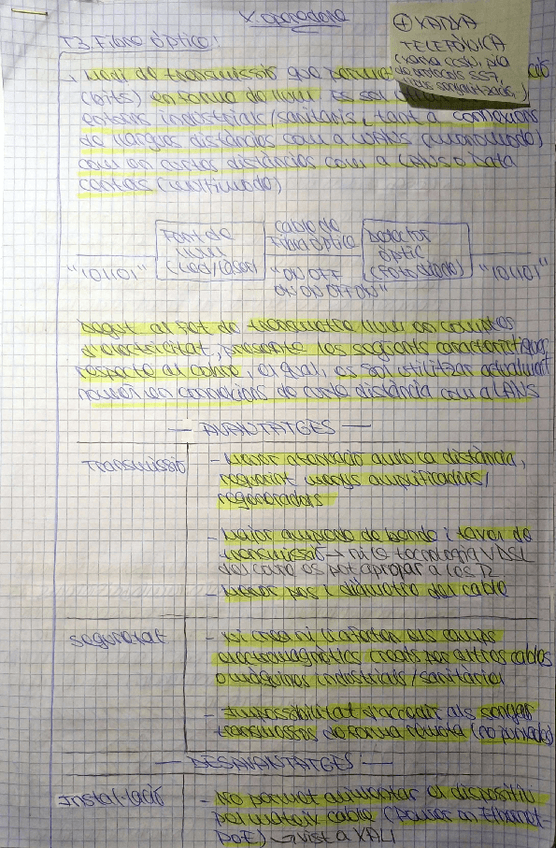 X. operadora
⊕ XARXA
TELEFÒNICA
T3. Fibra òptica:
Medi de transmissió que
(bits) en forma de llum. Es sol
entorns industrials/sanitaris, tant a connexions
de llargues distàncies com a WANs (monomodo)
com en curtes distàncies com a LANs o Data
(multimodo)
Font de
llum
(Led/Làser)
cable de
fibra òptica
Detector
òptic
(Fotodíode)
"101101"
"ON OFF
ON ON OFF ON"
"101101"
Degut al fet de transmetre llum en comptes
d'electricitat, presenta les següents característiques
respecte al coure, el qual, es sol utilitzar actualment
només en connexions de curta distància com a LANs
— AVANTATGES —
Transmissió
- Menor atenuació amb la distància,
requerint menys amplificadors/
regeneradors
- Major amplada de banda i taxa de
transmissió → ni la tecnologia VDSL
del coure es pot apropar a les R
- Menor pes i diàmetre del cable
Seguretat
- Ni crea ni li afecten els camps
electromagnètics creats per altres cables
o màquines industrials/sanitàries
- Impossibilitat d'accedir als senyals
transmesos de forma remota
— DESAVANTATGES —
Instal·lació
- No permet alimentar el dispositiu
pel mateix cable (Power on Ethernet
PoE) → vist a XALI